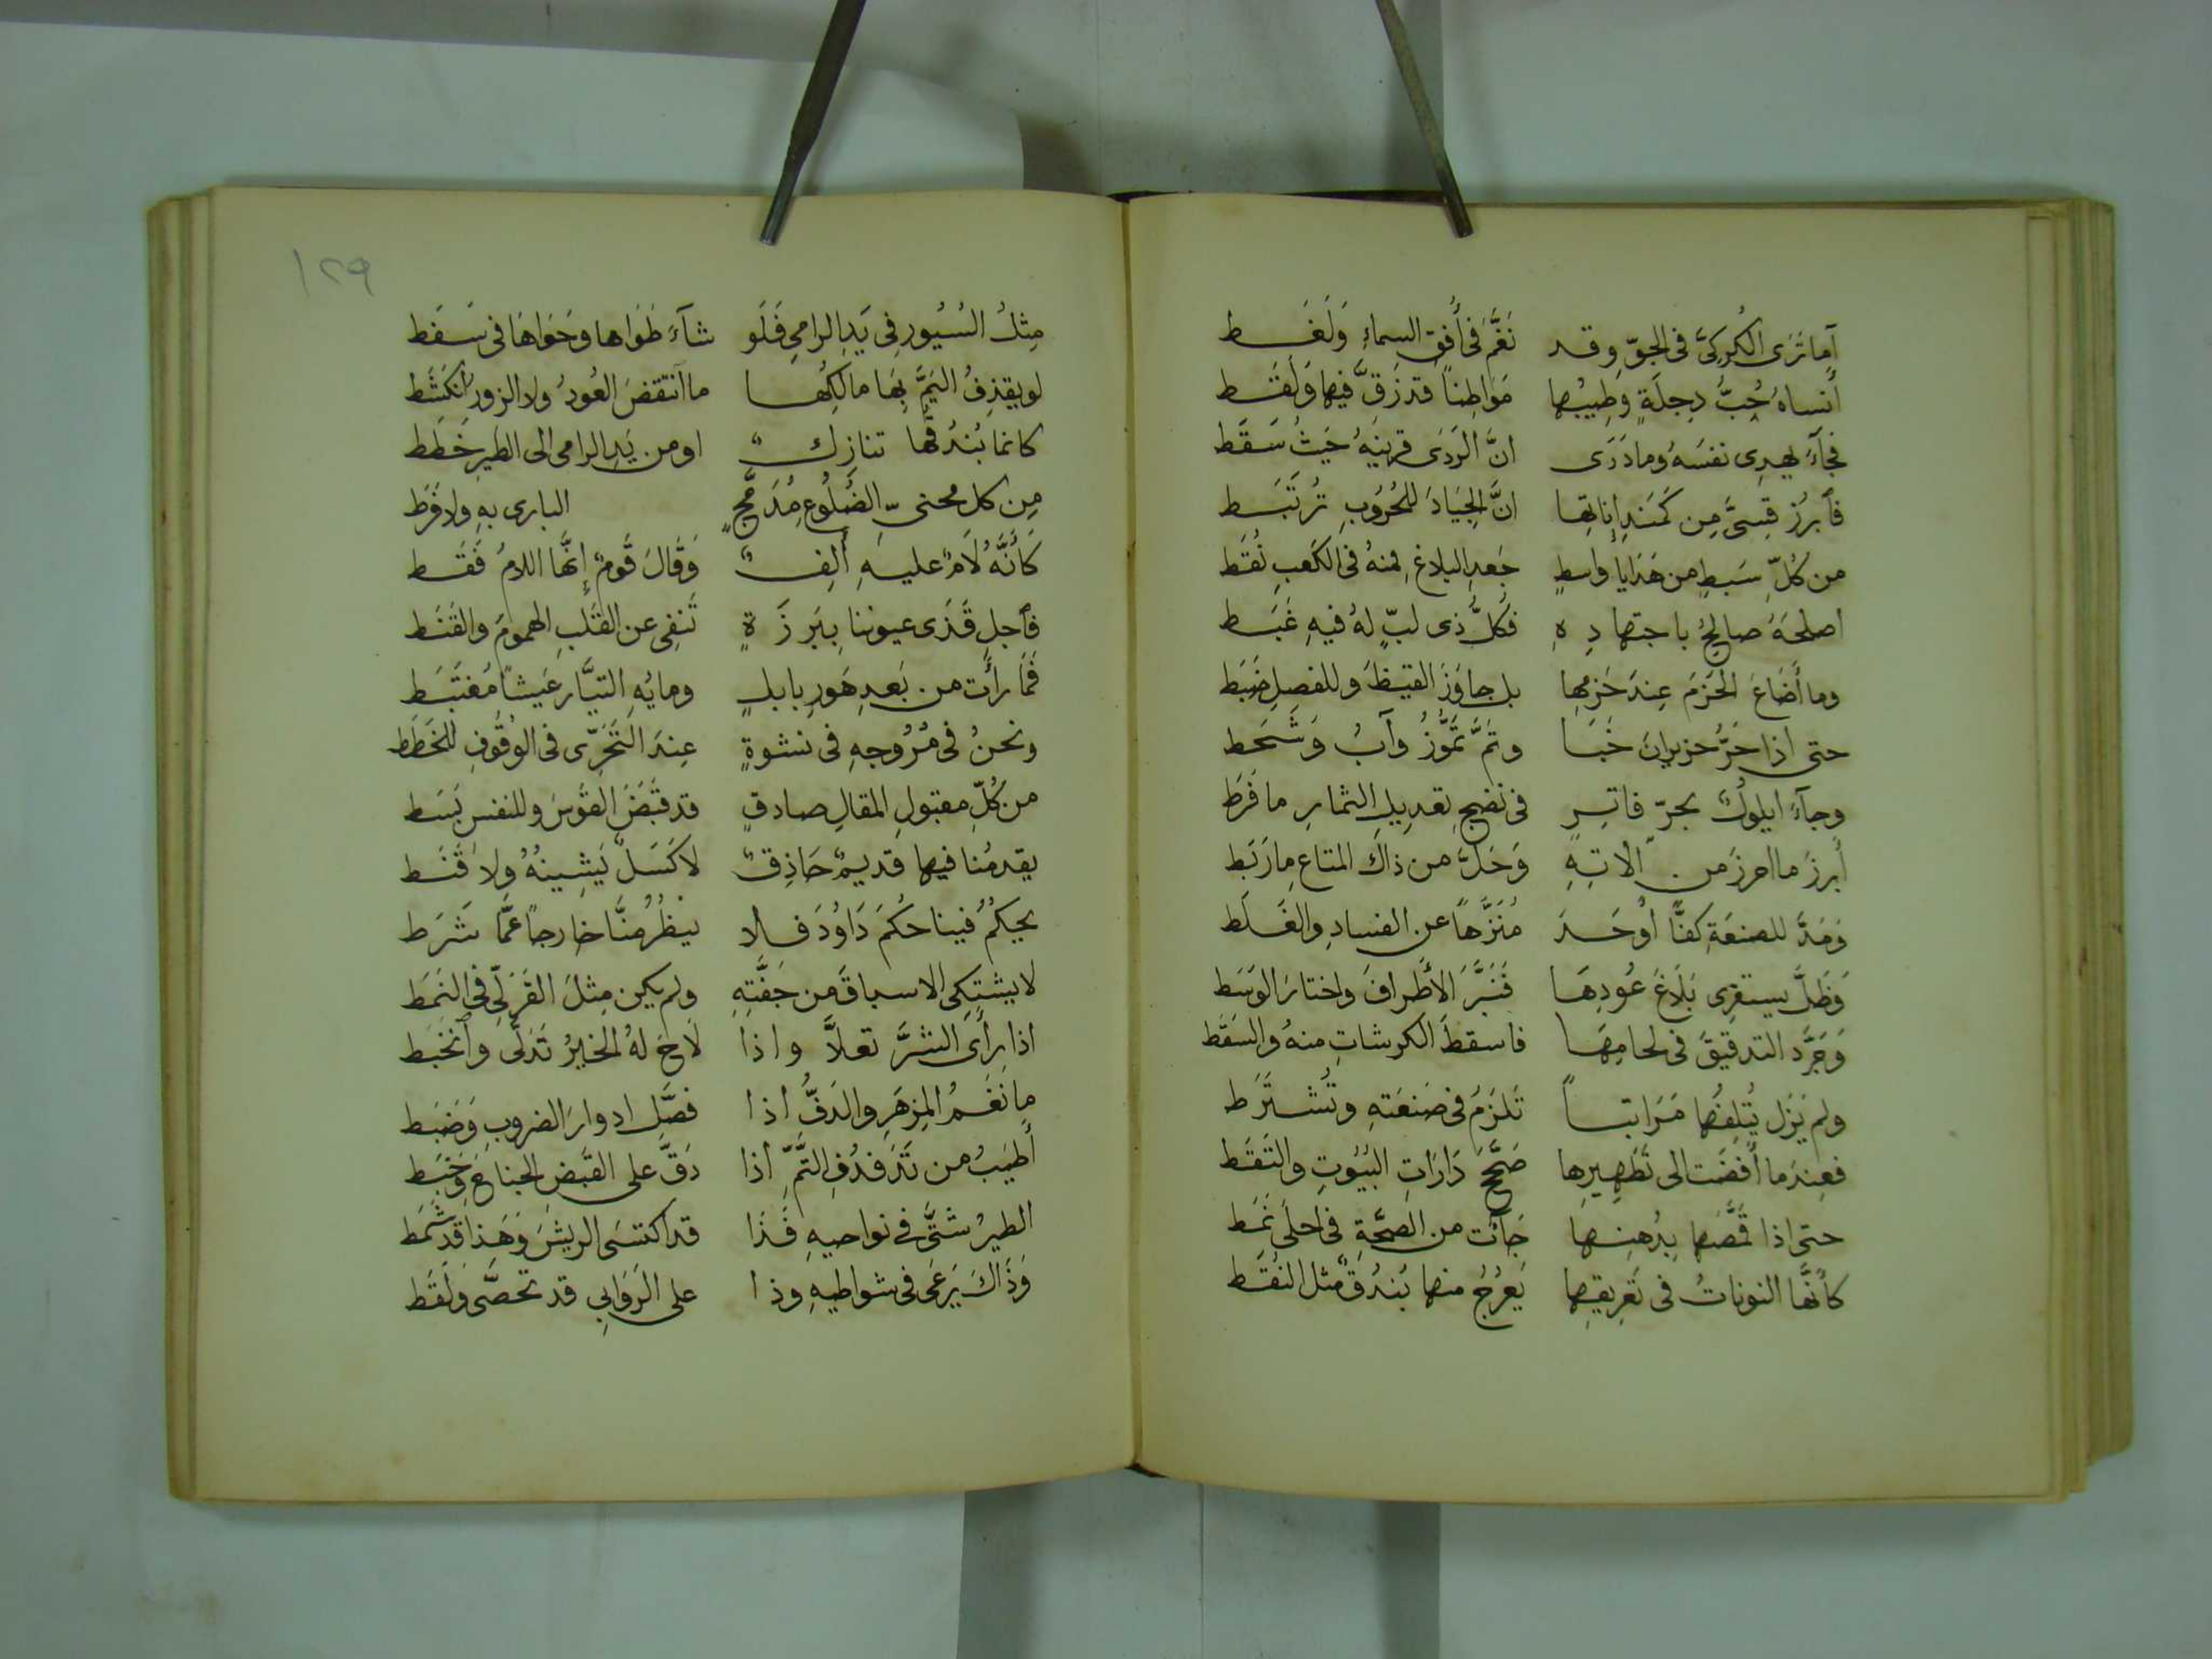 أما ترى الكركيَّ في الجوّ وقد نَغَّمَ في أُفق السماءِ وَلَغَط
أنساهُ حُبُّ دِجلَةٍ وَطِيبُها مَواطِناً قد زَقَّ فيها وَلَقَط
فجآءَ يهدى نفسَهُ وما دَرَى انَّ الرَدَى قرينهُ حَيثُ سَقَط
فأبرُز قِسىَّ مِن كَمَندِانِاتِها انَّ الجِيَادَ للحُرُوبِ تُرتَبَط
من كُلِّ سَبطٍ من هَدَايا واسطٍ جَعدِ البلاغِ منهُ في الكَعبِ نُقَط
اصلحَهُ صالحُ باجتهادِهِ فكلُّ ذى لبٍّ لهُ فيهِ غَبَط
وما أَضَاعَ الحَزمَ عِندَ حَزمِها بل جاوَزَ القيظَ وللفصلِ ضَبَط
حتى اذا حَرُّ حزيرانَ خَبَا وتمَّ تمُّوزُ وآبُ وَشَحَط
وجآءَ ايلولُ بحرّ فاتِرٍ في نضجِ تعديلِ الثمارِ ما فَرَط
أبرزَ ما احرزَ من آلاتِهِ وَحَلَّ من ذاكَ المتاعِ ما رَبَط
وَمَدَّ للصنعَةِ كفًّا أوحَدَ مُنَزَّهاً عن الفسادِ والغَلَط
وَظَلَّ يستقرى بَلَاغَ عُودِهَا فَنَبَّرَ الأَطرافَ واختارَ الوَسَط
وَجَرَّدَ التدقيقَ في لحامِهَا فاسقطَ الكرشاتِ منهُ والسَقَط
ولم يَزَل يُتلِفُها مَرَاتباً تَلزَمُ في صَنعَتهِ وتُشتَرَط
فعِندَما أَفضَت الى تَطهِيرِها صَحَّحَ دَارَاتِ البُيُوتِ والتَقَط
حتى اذا قَمَّصَها بِدُهنِها جَآءت من الصحَّةِ في احلَى نَمَط
كأنَّها النوناتُ في تَعرِيقِها يَعرُجُ منها بُندُقٌ مثل النُقَط
١٢٩
مِثلُ السُيُورِ في يَدِ الرامي فَلَو شآءَ طَوَاها وحَوَاهَا في سَفَط
لو يقذِفُ اليَمَّ بِهَا مالكُها ما انتقضَ العُودُ ولا الزور انكَشَط
كانما بُندُقُها تنازلٌ او من يَدِ الرامى الى الطَيرِ خَطَط
مِن كل محنىّ الضُلُوعِ مُدمَجٍ البارى بهِ ولا فَرَط
كَأَنَّهُ لَامٌ عليهِ أَلِفٌ وَقَالَ قَومٌ إِنَّها اللامُ فَقَط
فأجلِ قَذَى عيوننا بِبَرزَةٍ تَنفِى عن القَلبِ الهمومَ والقَنَط
فَمَا رأَت من بَعدِ هَورِ بابلٍ ومايُهِ التيَّار عَيشاً مُغتَبَط
ونحنُ في مُرُوجهِ في نشوةٍ عِندَ التَحَرّى في الوُقُوفِ للخَطَط
من كُلِّ مقبولِ المقالِ صادقٍ قد قَبَضَ القَوسَ وللنفسِ بَسَط
يقدمُنا فيها قديمٌ حَاذِقٌ لا كَسَلٌ يَشِينُهُ ولا قَنَط
يحكمُ فينا حُكمَ دَاوُدَ فلا ينظُرُ مِنَّا خارجاً عَمَّا شَرَط
لا يشتكى الاسباقَ من جَفَّتِهِ ولم يكن مِثلَ القَزَلّىِ في النَمَط
اذا رأى الشرَّ تعلَّا واذا لاحَ لهُ الخيرُ تَدَلَّى وانخَبَط
ما نَغَمُ المِزهَرِ والدَفُّ اذا فصَّل ادوارَ الضروبِ وَضَبَط
أَطيَبُ من تَدَفدُفِ التَّمِّ اذا دَقَّ على القَبضِ الجناحَ وخَبَط
الطيرُ شتَّى في نواحيهِ فَذَا قد اكتسَى الريشَ وَهَذا قَد شَمَط
وَذَاكَ يَرعَى في شواطيهِ وذا على الرَوَابي قد تحصَّى وَلَقَط